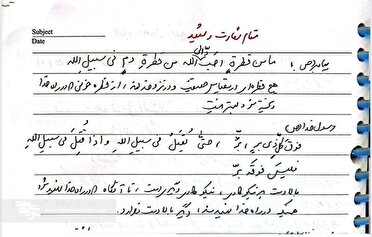 Subject
Date
مقام شهادت و شهید
پیامبر(ص) : ما من قطرةٍ احَبُّ الی اللّه من قطرةِ دمٍ فی سبیلِ اللّه
هیچ قطره‌ای در مقیاس حقیقت و در نزد خدا، از قطره خونی که در راه خدا
ریخته شود بهتر نیست
رسول خدا (ص)
فوق کلِّ ذی برٍ، برٌّ ، حتّی یُقتَلَ فی سبیلِ اللّهِ و اذا قُتِلَ فی سبیلِ اللهِ
فلیسَ فوقَه برٌّ
بالادست هر نیکوکاری، نیکوکاری دیگر است، تا آنگاه که در راه خدا شهید شود
همینکه در راه خدا شهید شد، دیگر بالادست ندارد.